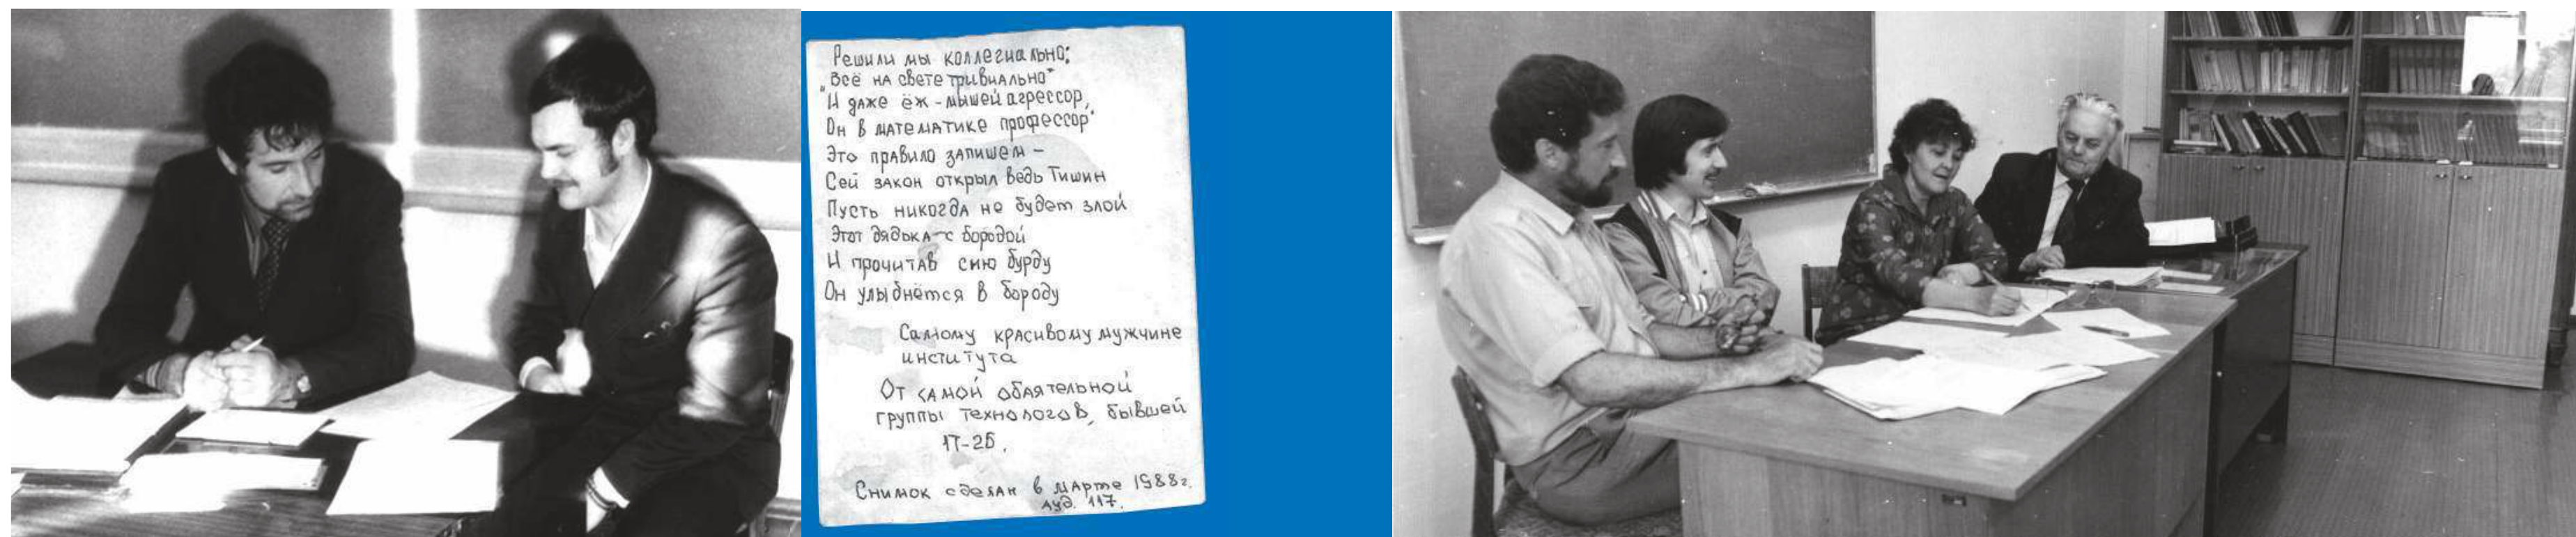 Решили мы коллегиально:
"Всё на свете тривиально"
"И даже ёж - мышей агрессор,
Он в математике профессор"
Это правило запишем -
Сей закон открыл ведь Тишин
Пусть никогда не будет злой
Этот дядька с бородой
И прочитав сию бурду
Он улыбнётся в бороду
Самому красивому мужчине
института
От самой обаятельной
группы технологов, бывшей
П-25.
Снимок сделан в марте 1988г.
ауд. 117.